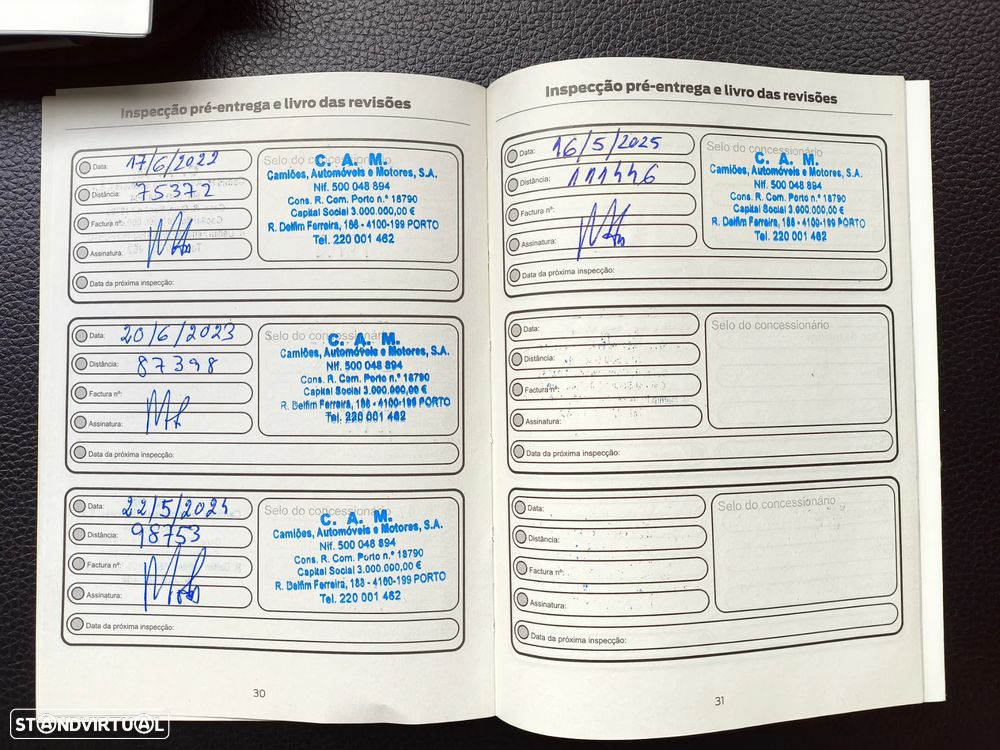 Inspecção pré-entrega e livro das revisões
Data: 17/6/2022
Distância: 75372
Factura nº:
Assinatura:
Data da próxima inspecção:
Selo do concessionário
C. A. M.
Camiões, Automóveis e Motores, S.A.
Nif. 500 048 894
Cons. R. Com. Porto n.º 18790
Capital Social 3.000.000,00 €
R. Delfim Ferreira, 186 - 4100-199 PORTO
Tel. 220 001 462
Data: 20/6/2023
Distância: 87398
Factura nº:
Assinatura:
Data da próxima inspecção:
Selo do concessionário
C. A. M.
Camiões, Automóveis e Motores, S.A.
Nif. 500 048 894
Cons. R. Com. Porto n.º 18790
Capital Social 3.000.000,00 €
R. Delfim Ferreira, 186 - 4100-199 PORTO
Tel. 220 001 462
Data: 22/5/2024
Distância: 98753
Factura nº:
Assinatura:
Data da próxima inspecção:
Selo do concessionário
C. A. M.
Camiões, Automóveis e Motores, S.A.
Nif. 500 048 894
Cons. R. Com. Porto n.º 18790
Capital Social 3.000.000,00 €
R. Delfim Ferreira, 186 - 4100-199 PORTO
Tel. 220 001 462
30
Inspecção pré-entrega e livro das revisões
Data: 16/5/2025
Distância: 111446
Factura nº:
Assinatura:
Data da próxima inspecção:
Selo do concessionário
C. A. M.
Camiões, Automóveis e Motores, S.A.
Nif. 500 048 894
Cons. R. Com. Porto n.º 18790
Capital Social 3.000.000,00 €
R. Delfim Ferreira, 186 - 4100-199 PORTO
Tel. 220 001 462
Data:
Distância:
Factura nº:
Assinatura:
Data da próxima inspecção:
Selo do concessionário
Data:
Distância:
Factura nº:
Assinatura:
Data da próxima inspecção:
Selo do concessionário
31
STANDVIRTUAL